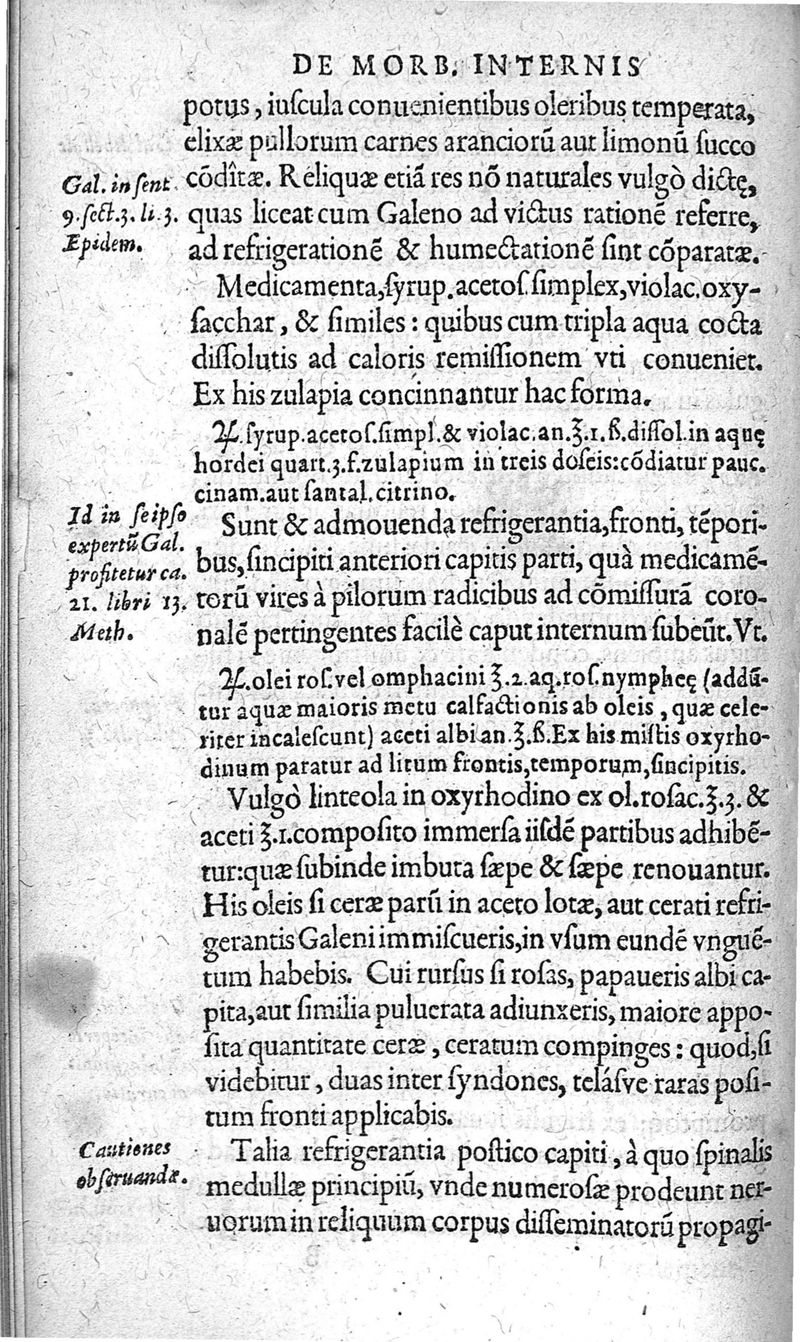 DE MORB. INTERNIS
potus, iuſcula conuenientibus oleribus temperata,
elixæ pullorum carnes aranciorũ aut limonũ ſucco
Gal. in ſent.
cõdîtæ. Reliquæ etiã res nõ naturales vulgò dictę,
9. ſect. 3. li. 3.
quas liceat cum Galeno ad victus rationẽ referre,
Epidem.
ad refrigerationẽ & humectationẽ ſint cõparatæ.
Medicamenta, ſyrup. acetoſ. ſimplex, violac. oxy-
ſacchar, & ſimiles: quibus cum tripla aqua cocta
diſſolutis ad caloris remiſſionem vti conueniet.
Ex his zulapia concinnantur hac forma.
℞. ſyrup. acetoſ. ſimpl. & violac. an. ℥. 1. ß. diſſol. in aquę
hordei quart. 3. f. zulapium in treis doſeis: cõdiatur pauc.
cinam. aut ſantal. citrino.
Id in ſeipſo
expertũ Gal.
profitetur ca.
21. libri 13.
Meth.
Sunt & admouenda refrigerantia, fronti, tẽpori-
bus, ſincipiti anteriori capitis parti, quà medicamẽ-
torũ vires à pilorum radicibus ad cõmiſſurã coro-
nalẽ pertingentes facilè caput internum ſubeũt. Vt.
℞. olei roſ. vel omphacini ℥. 2. aq. roſ. nympheę (addũ-
tur aquæ maioris metu calfactionis ab oleis, quæ cele-
riter incaleſcunt) aceti albi an. ℥. ß. Ex his miſtis oxyrho-
dinum paratur ad litum frontis, temporum, ſincipitis.
Vulgò linteola in oxyrhodino ex ol. roſac. ℥. 3. &
aceti ℥. 1. compoſito immerſa iiſdẽ partibus adhibẽ-
tur: quæ ſubinde imbuta ſæpe & ſæpe renouantur.
His oleis ſi ceræ parũ in aceto lotæ, aut cerati refri-
gerantis Galeni immiſcueris, in vſum eundẽ vnguẽ-
tum habebis. Cui rurſus ſi roſas, papaueris albi ca-
pita, aut ſimilia puluerata adiunxeris, maiore appo-
ſita quantitate ceræ, ceratum compinges: quod, ſi
videbitur, duas inter ſyndones, teláſve raras poſi-
tum fronti applicabis.
Cautiones
obſeruandæ.
Talia refrigerantia poſtico capiti, à quo ſpinalis
medullæ principiũ, vnde numeroſæ prodeunt ner-
uorum in reliquum corpus diſſeminatorũ propagi-